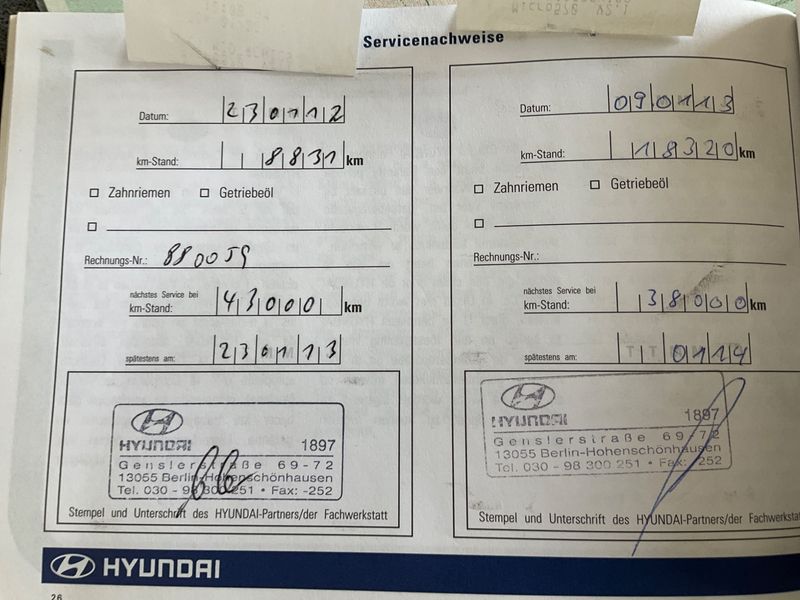 Servicenachweise
Datum: 230112
km-Stand: 8831 km
Zahnriemen Getriebeöl
Rechnungs-Nr.: 880059
nächstes Service bei
km-Stand: 43000 km
spätestens am: 230113
HYUNDAI 1897
Genslerstraße 69-72
13055 Berlin-Hohenschönhausen
Tel. 030 - 98 300 251 • Fax: -252
Stempel und Unterschrift des HYUNDAI-Partners/der Fachwerkstatt
Datum: 090113
km-Stand: 18320 km
Zahnriemen Getriebeöl
Rechnungs-Nr.:
nächstes Service bei
km-Stand: 38000 km
spätestens am: TT 0114
HYUNDAI 1897
Genslerstraße 69-72
13055 Berlin-Hohenschönhausen
Tel. 030 - 98 300 251 • Fax: -252
Stempel und Unterschrift des HYUNDAI-Partners/der Fachwerkstatt
HYUNDAI
26